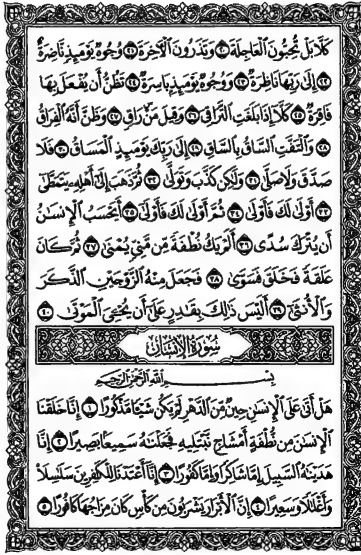 كَلَّا بَلْ تُحِبُّونَ الْعَاجِلَةَ ٢٠ وَتَذَرُونَ الْآخِرَةَ ٢١ وُجُوهٌ يَوْمَئِذٍ نَاضِرَةٌ
٢٢ إِلَىٰ رَبِّهَا نَاظِرَةٌ ٢٣ وَوُجُوهٌ يَوْمَئِذٍ بَاسِرَةٌ ٢٤ تَظُنُّ أَن يُفْعَلَ بِهَا
فَاقِرَةٌ ٢٥ كَلَّا إِذَا بَلَغَتِ التَّرَاقِيَ ٢٦ وَقِيلَ مَنْ رَاقٍ ٢٧ وَظَنَّ أَنَّهُ الْفِرَاقُ
٢٨ وَالْتَفَّتِ السَّاقُ بِالسَّاقِ ٢٩ إِلَىٰ رَبِّكَ يَوْمَئِذٍ الْمَسَاقُ ٣٠ فَلَا
صَدَّقَ وَلَا صَلَّىٰ ٣١ وَلَٰكِن كَذَّبَ وَتَوَلَّىٰ ٣٢ ثُمَّ ذَهَبَ إِلَىٰ أَهْلِهِ يَتَمَطَّىٰ
٣٣ أَوْلَىٰ لَكَ فَأَوْلَىٰ ٣٤ ثُمَّ أَوْلَىٰ لَكَ فَأَوْلَىٰ ٣٥ أَيَحْسَبُ الْإِنسَٰنُ
أَن يُتْرَكَ سُدًى ٣٦ أَلَمْ يَكُ نُطْفَةً مِّن مَّنِيٍّ يُمْنَىٰ ٣٧ ثُمَّ كَانَ
عَلَقَةً فَخَلَقَ فَسَوَّىٰ ٣٨ فَجَعَلَ مِنْهُ الزَّوْجَيْنِ الذَّكَرَ
وَالْأُنثَىٰ ٣٩ أَلَيْسَ ذَٰلِكَ بِقَٰدِرٍ عَلَىٰ أَن يُحْيِيَ الْمَوْتَىٰ ٤٠
سُورَةُ الْإِنسَانِ
بِسْمِ اللَّهِ الرَّحْمَٰنِ الرَّحِيمِ
هَلْ أَتَىٰ عَلَى الْإِنسَٰنِ حِينٌ مِّنَ الدَّهْرِ لَمْ يَكُن شَيْئًا مَّذْكُورًا ١ إِنَّا خَلَقْنَا
الْإِنسَٰنَ مِن نُّطْفَةٍ أَمْشَاجٍ نَّبْتَلِيهِ فَجَعَلْنَٰهُ سَمِيعًا بَصِيرًا ٢ إِنَّا
هَدَيْنَٰهُ السَّبِيلَ إِمَّا شَاكِرًا وَإِمَّا كَفُورًا ٣ إِنَّا أَعْتَدْنَا لِلْكَٰفِرِينَ سَلَٰسِلَا۟
وَأَغْلَٰلًا وَسَعِيرًا ٤ إِنَّ الْأَبْرَارَ يَشْرَبُونَ مِن كَأْسٍ كَانَ مِزَاجُهَا كَافُورًا ٥